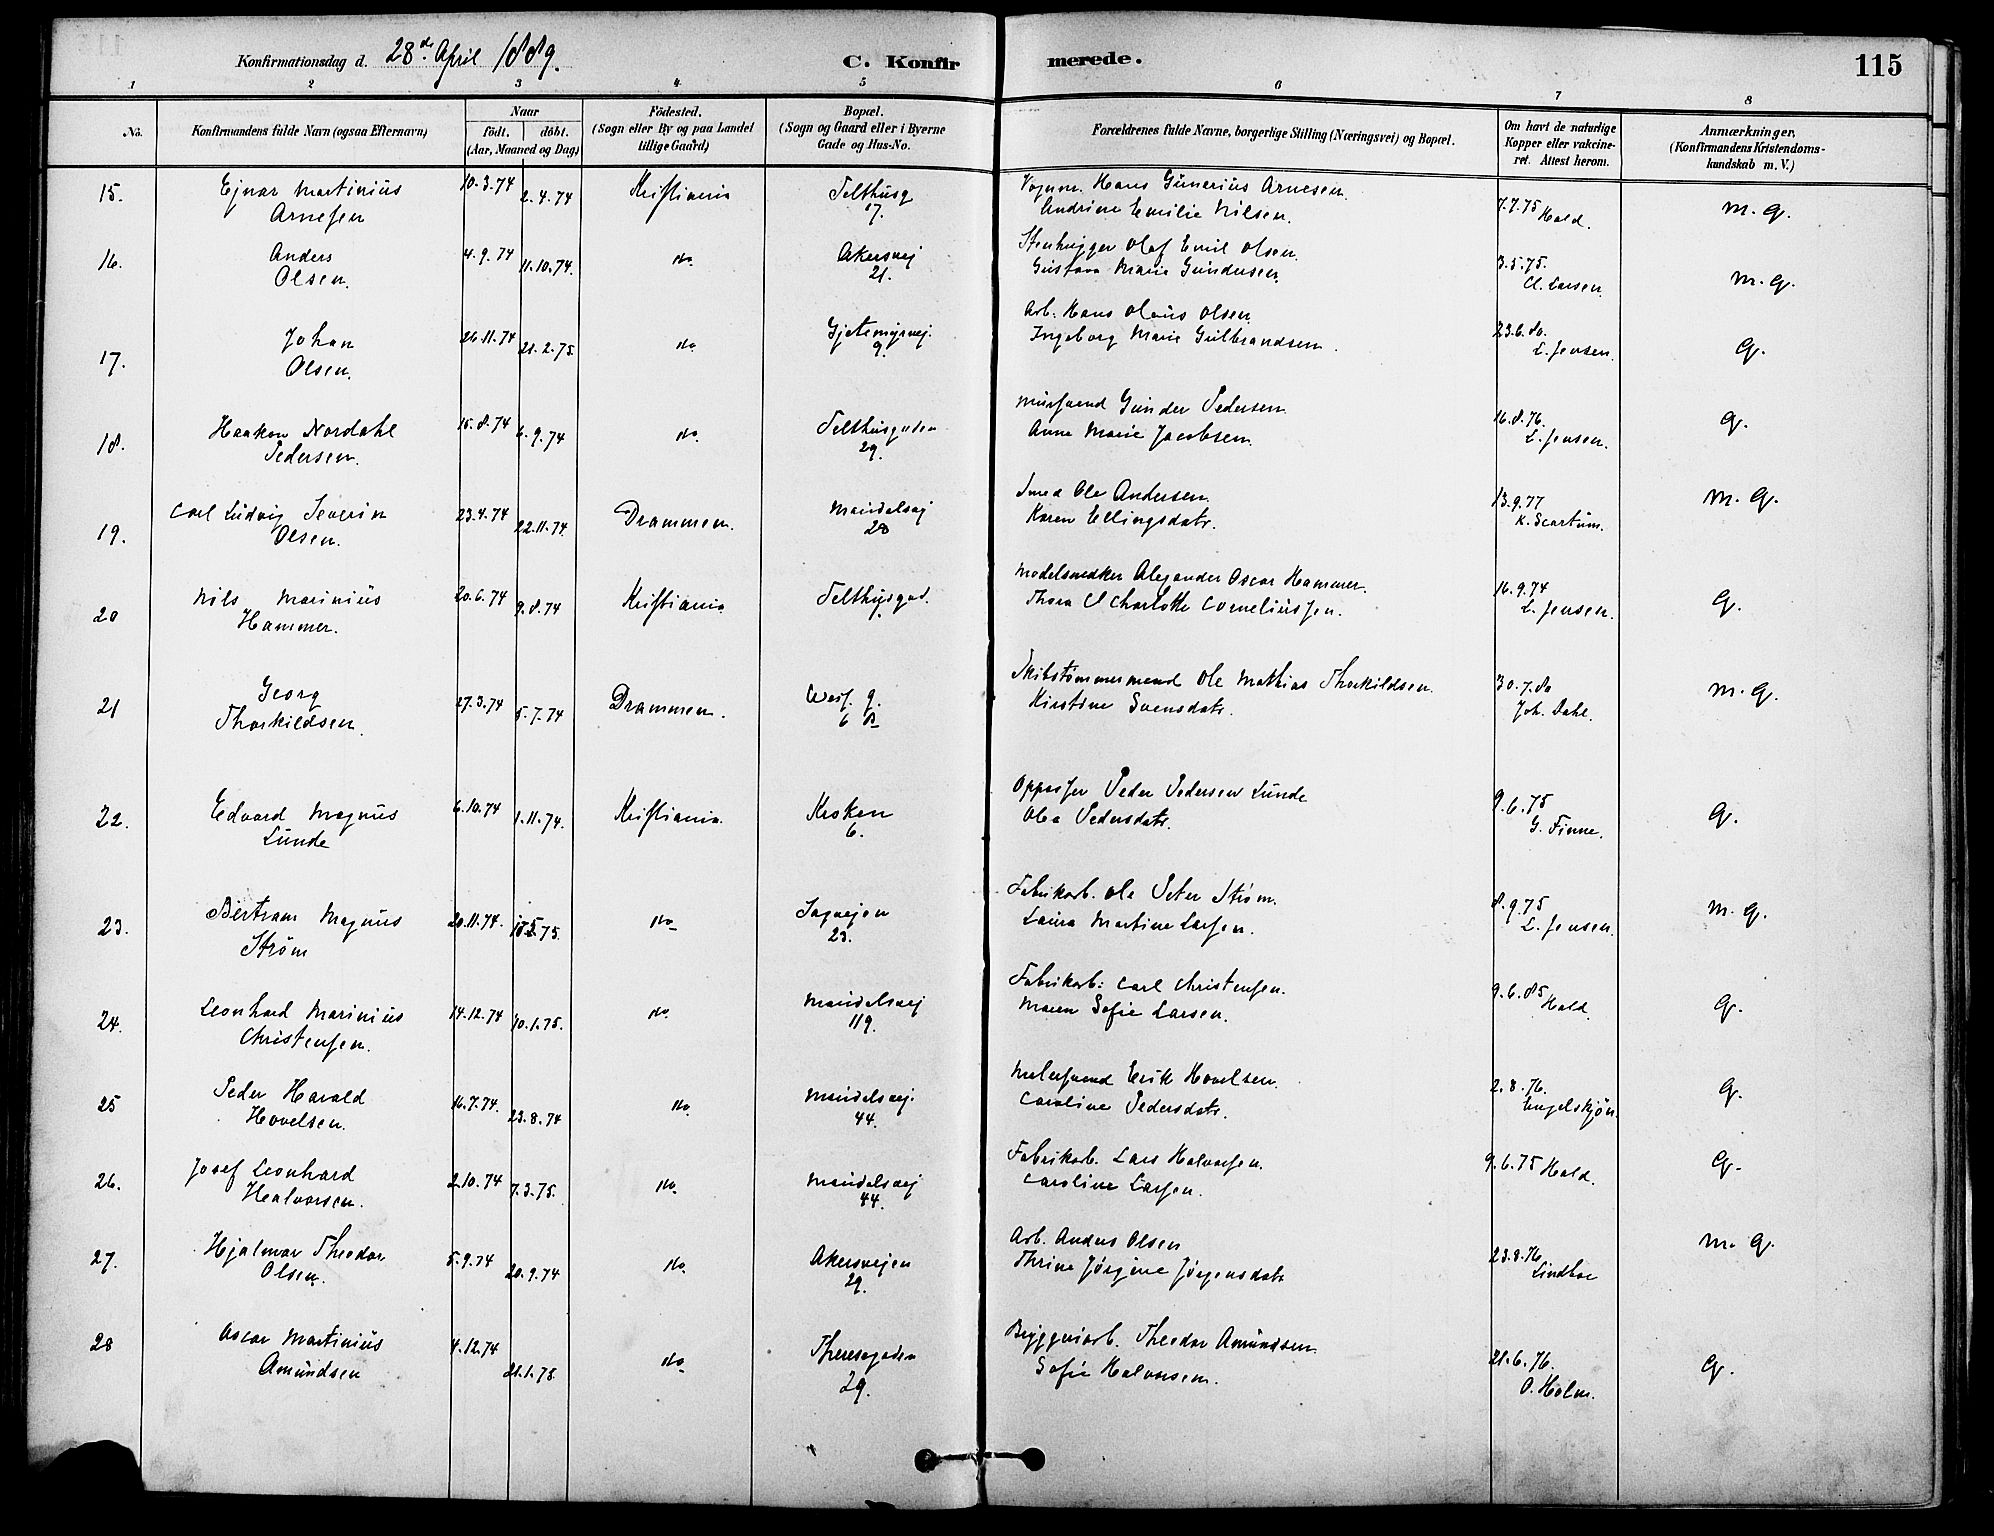 Konfirmationsdag d. 28de April 1889.
C. Konfirmerede.
115
1 2 3 4 5 6 7 8
No.
Konfirmandens fulde Navn (ogsaa Efternavn)
Naar
födt. döbt.
(Aar, Maaned og Dag)
Födested.
(Sogn eller By og paa Landet
tillige Gaard)
Bopæl.
(Sogn og Gaard eller i Byerne
Gade og Hus-No.
Forældrenes fulde Navne, borgerlige Stilling (Næringsvei) og Bopæl.
Om havt de naturlige
Kopper eller vakcine-
ret. Attest herom.
Anmærkninger,
(Konfirmandens Kristendoms-
kundskab m. V.)
15. Ejnar Martinius 10.3.74 2.4.74 Kristiania Telthusg Vognm. Hans Gunerius Arnesen. 7.7.75 Hald. M. G.
Arnesen 17. Andrine Emilie Nilsen.
16. Anders 4.9.74 11.10.74. do. Akersvej Stenhugger Olaf Emil Olsen. 3.5.75. M. G.
Olsen. 21. Gustava Marie Gundersen. Cl. Larsen.
17. Johan 26.11.74 21.2.75. do. Gjetemyrvej. Arb. Hans Olaus Olsen. 23.6.80. G.
Olsen. 9. Ingeborg Marie Gulbrandsen. L. Jensen.
18. Haakon Nordahl 15.8.74 6.9.74 do. Telthusgaden Mursvend Gunder Pedersen. 16.8.76. G.
Pedersen. 29. Anna Marie Jacobsen. L. Jensen.
19. Carl Ludvig Severin 23.4.74 22.11.74. Drammen. Maridalsvej Smed Ole Andersen. 13.9.77 M. G.
Olsen. 28 Karen Ellingsdatr. K. Scartum.
20 Nils Marinius 20.6.74 9.8.74 Kristiania Telthusgad. Modelsnedker Alexander Oscar Hammer. 16.9.74 G.
Hammer. Thora Charlotte Corneliussen. L. Jensen.
21 Georg 27.3.74 5.7.74 Drammen. Skibstømmermand Ole Mathias Thorkildsen. 30.7.80 M. G.
Thorkildsen. 6 B Kirstine Svensdatr. Joh. Dahl.
22. Edvard Magnus 6.10.74 1.11.74. Kristiania. Kroken Oppasser Peder Pedersen Lunde 9.6.75 G.
Lunde 6. Olea Pedersdatr. G. Finne.
23. Bertram Magnus 20.11.74. 75. do. Sagvejen Fabrikarb. Ole Peter Strøm. 8.9.75 M. G.
Strøm 23. Laura Martine Larsen. L. Jensen.
24. Leonhard Marinius 14.12.74 10.1.75. do. Maridalsvej Fabrikarb: Carl Christensen. 9.6.85 Hald. G.
Christensen. 119. Maren Sofie Larsen.
25 Peder Harald 16.7.74. 23.8.74 do. Maridalsvej. Malersvend Erik Hovelsen. 2.8.76. G.
Hovelsen. 44. Caroline Pedersdatr. Engelskjøn.
26. Josef Leonhard 2.10.74 7.3.75. do. Maridalsvej Fabrikarb. Lars Halvorsen. 9.6.75 Hald. G.
Halvorsen. 44. Caroline Larsen.
27. Hjalmar Theodor 5.9.74 20.9.74 do. Akersvejen Arb. Anders Olsen 23.8.76. M. G.
Olsen. 29. Thrine Jørgine Jørgensdatr Lindboe
28 Oscar Martinius 4.12.74 21.1.75. do. Theresegaden Bryggeriarb. Theodor Amundsen. 21.6.76. G.
Amundsen 29. Sofie Halvorsen. O. Holm.